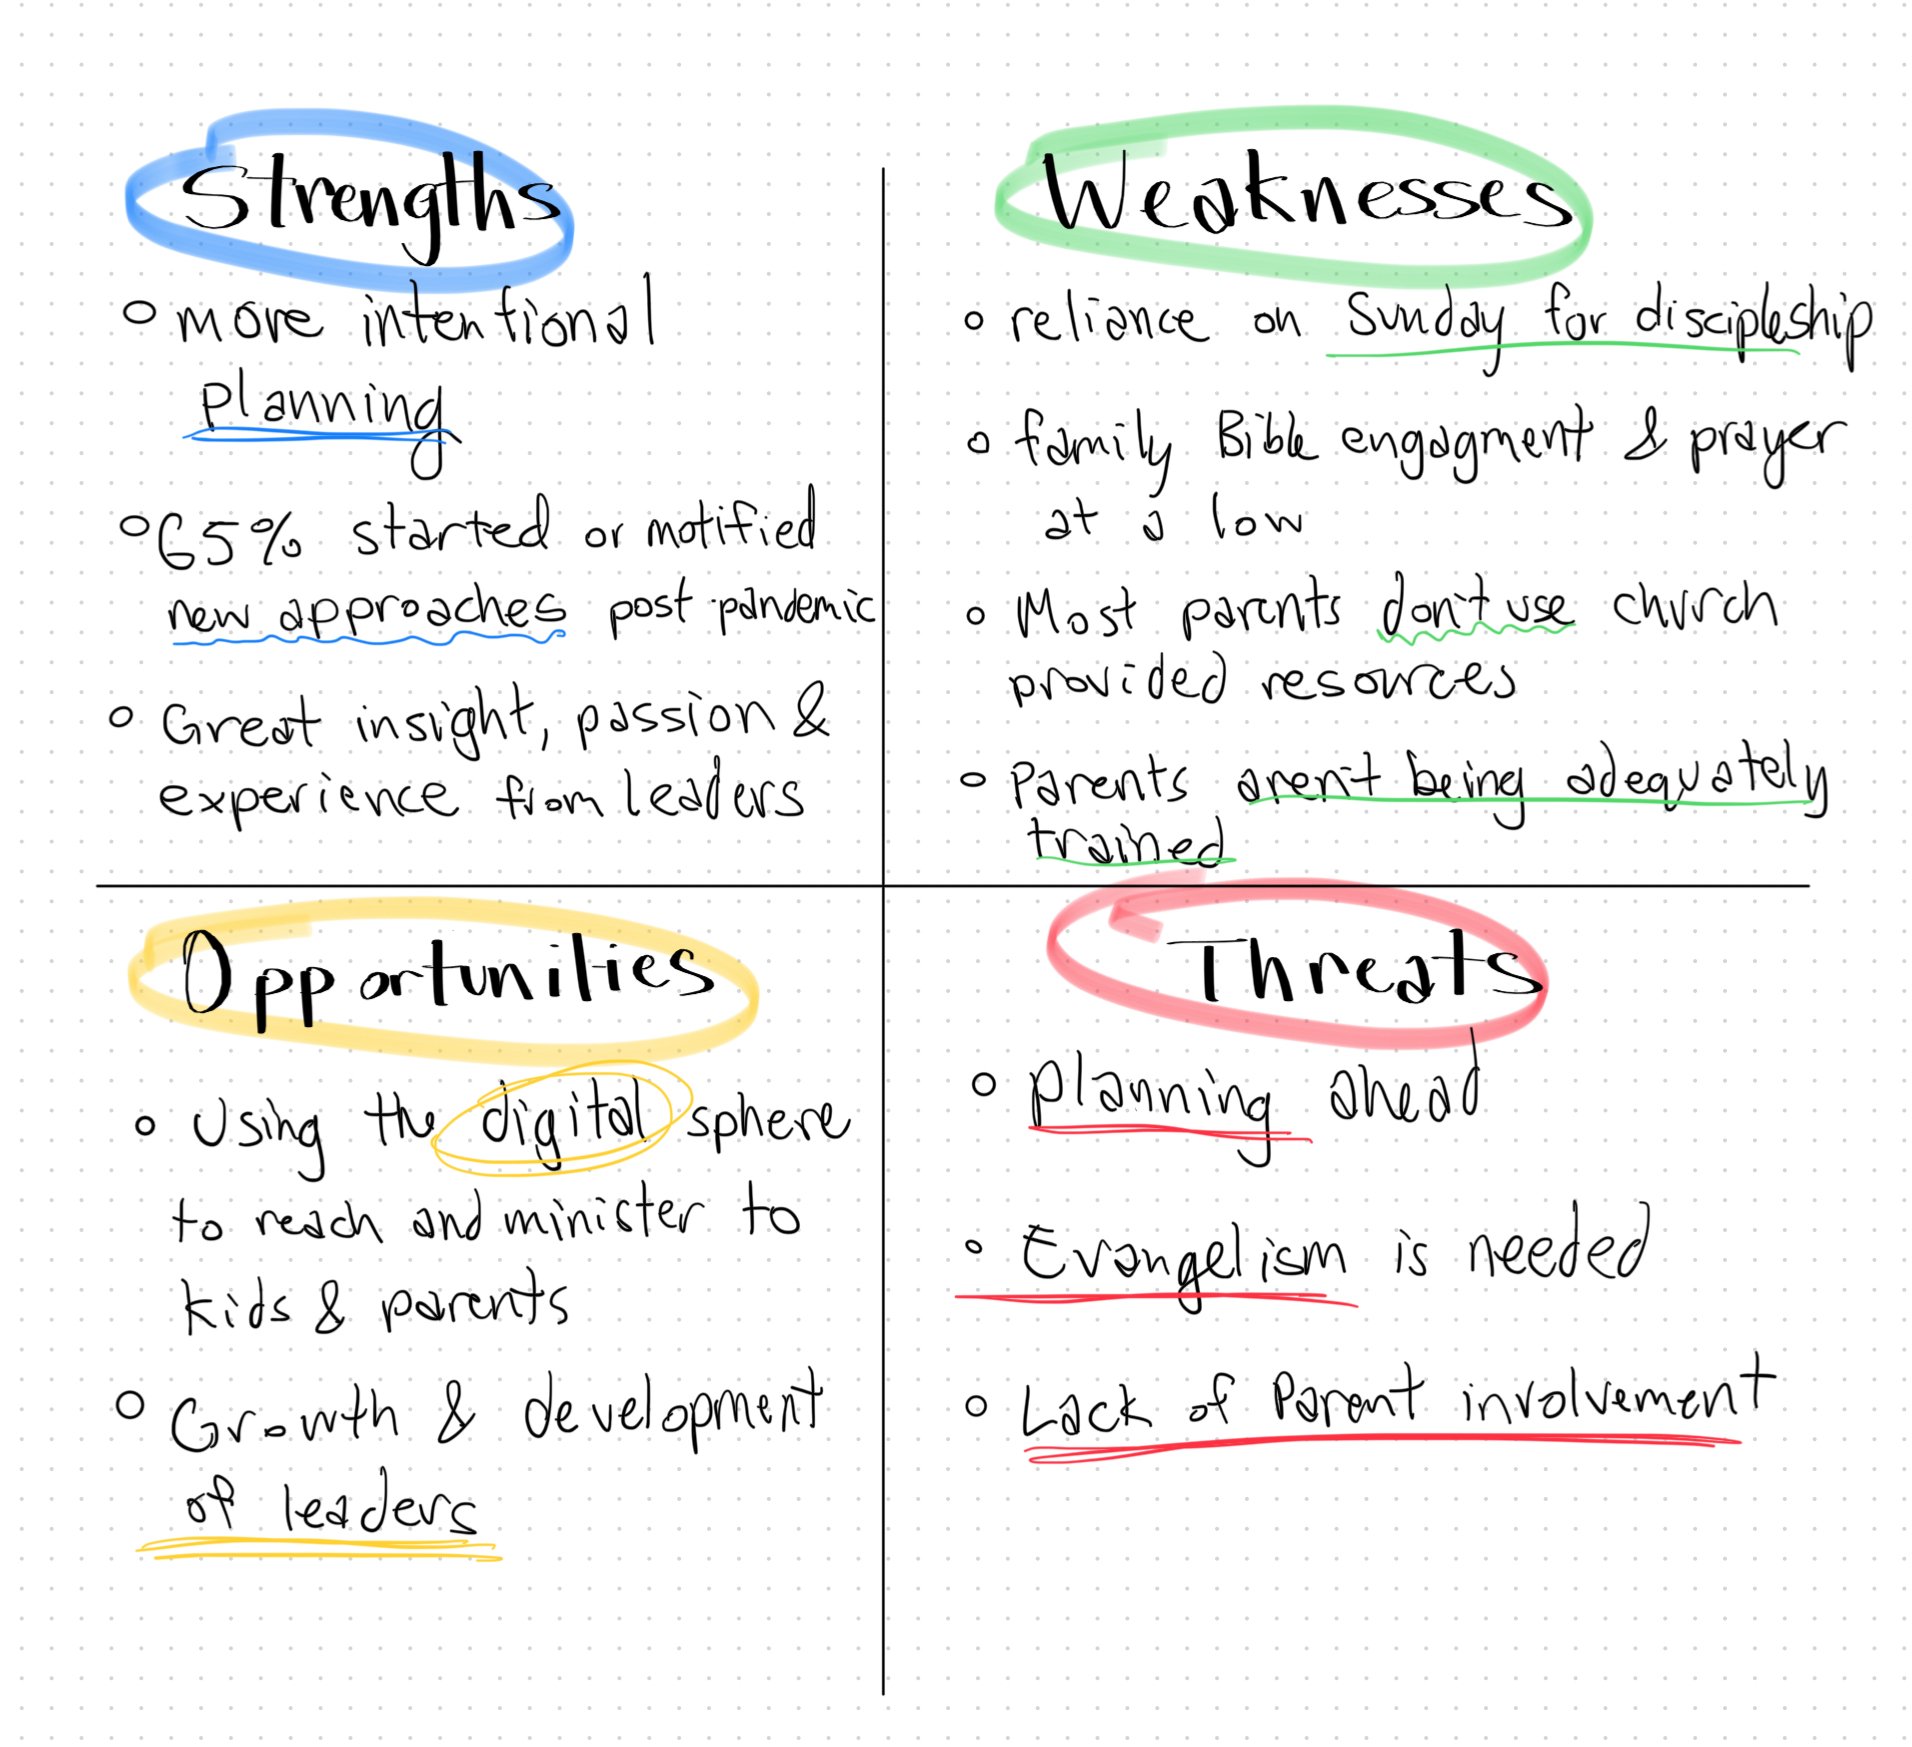 Strengths
more intentional
planning
65% started or motified
new approaches post pandemic
Great insight, passion &
experience from leaders
Weaknesses
reliance on Sunday for discipleship
family Bible engagment & prayer
at a low
Most parents don't use church
provided resources
Parents aren't being adequately
trained
Opportunities
Using the digital sphere
to reach and minister to
kids & parents
Growth & development
of leaders
Threats
planning ahead
Evangelism is needed
Lack of Parent involvement